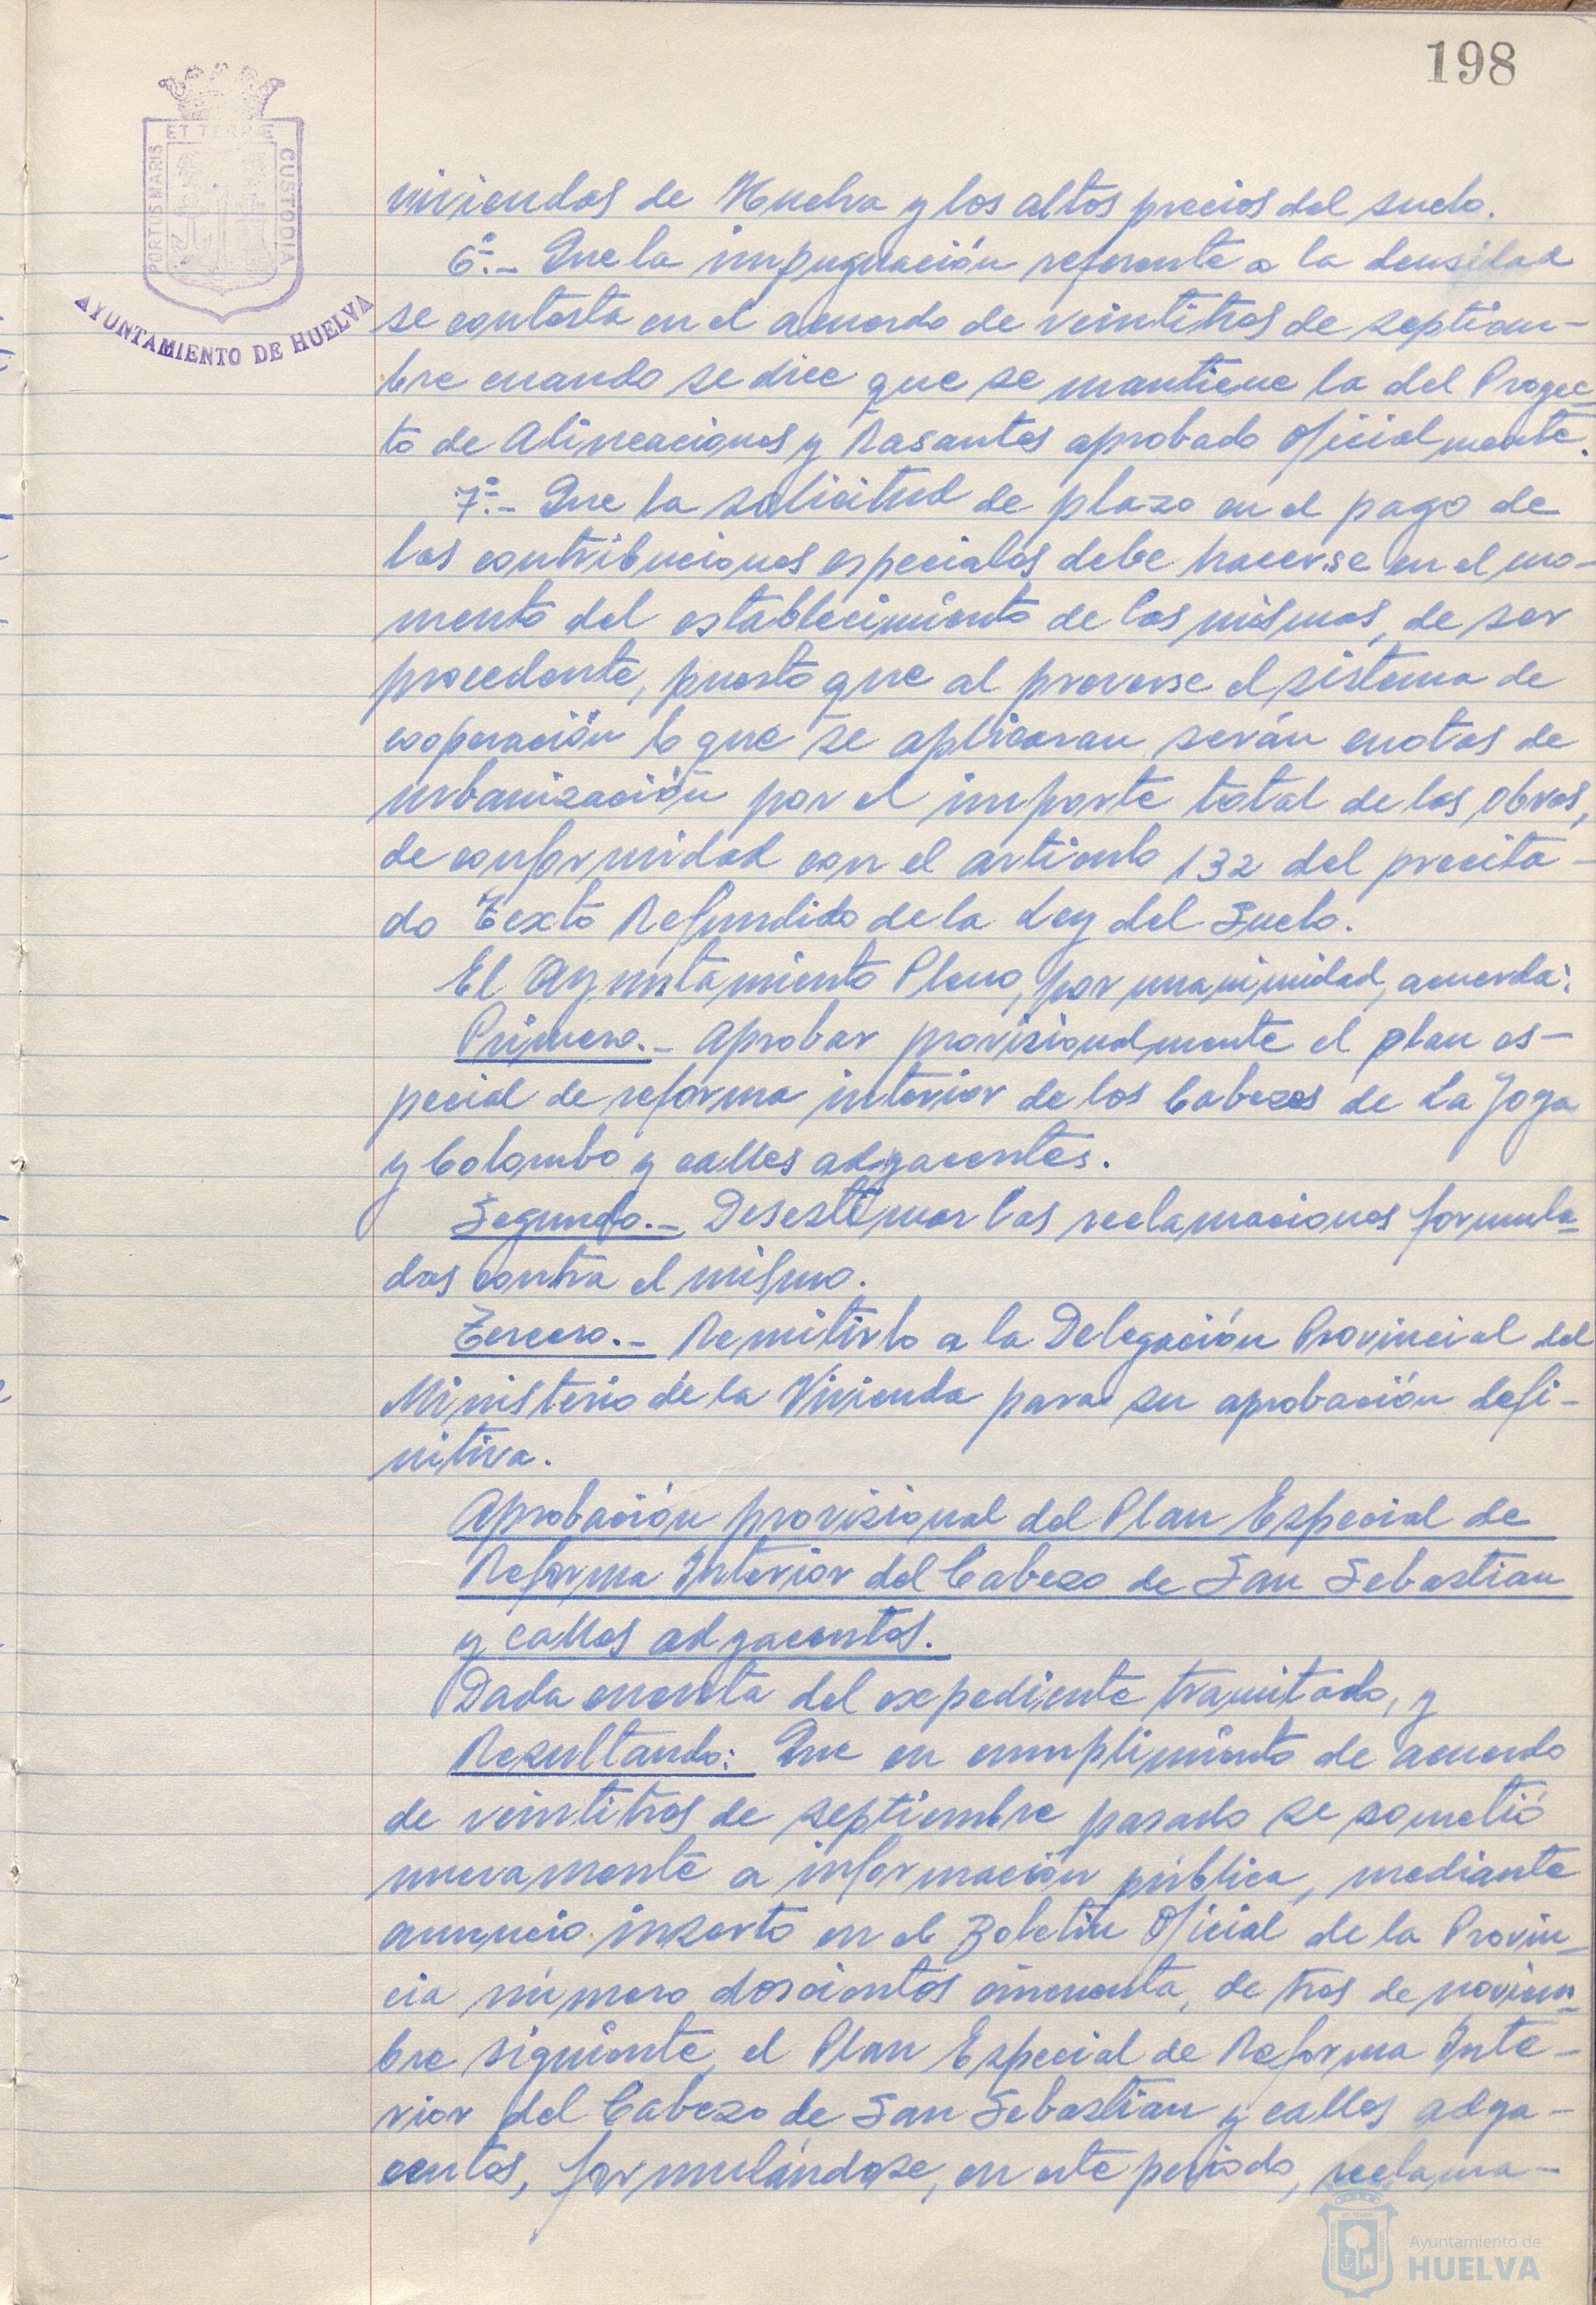 198
ET TERRÆ
PORTUS MARIS
CUSTODIA
AYUNTAMIENTO DE HUELVA
viviendas de Huelva y los altos precios del suelo.
6º.- Que la impugnación referente a la densidad
se contesta en el acuerdo de veintitres de septiem-
bre cuando se dice que se mantiene la del Proyec-
to de Alineaciones y Rasantes aprobado oficialmente.
7º.- Que la solicitud de plazo en el pago de
las contribuciones especiales debe hacerse en el mo-
mento del establecimiento de las mismas, de ser
procedente, puesto que al proverse el sistema de
cooperación lo que se aplicaran serán cuotas de
urbanización por el importe total de las obras,
de conformidad con el articulo 132 del precita-
do Texto Refundido de la Ley del Suelo.
El Ayuntamiento Pleno, por unanimidad, acuerda:
Primero.- Aprobar provisionalmente el plan es-
pecial de reforma interior de los Cabezos de La Joya
y Colombo y calles adyacentes.
Segundo.- Desestimar las reclamaciones formula-
das contra el mismo.
Tercero.- Remitirlo a la Delegación Provincial del
Ministerio de la Vivienda para su aprobación defi-
nitiva.
Aprobación provisional del Plan Especial de
Reforma Interior del Cabezo de San Sebastian
y calles adyacentes.
Dada cuenta del expediente tramitado, y
Resultando: Que en cumplimiento de acuerdo
de veintitres de septiembre pasado se sometió
nuevamente a información pública, mediante
anuncio inserto en el Boletin Oficial de la Provin-
cia número doscientos cincuenta, de tres de noviem-
bre siguiente, el Plan Especial de Reforma Inte-
rior del Cabezo de San Sebastian y calles adya-
centes, formulándose, en este periodo, reclama-
Ayuntamiento de
HUELVA